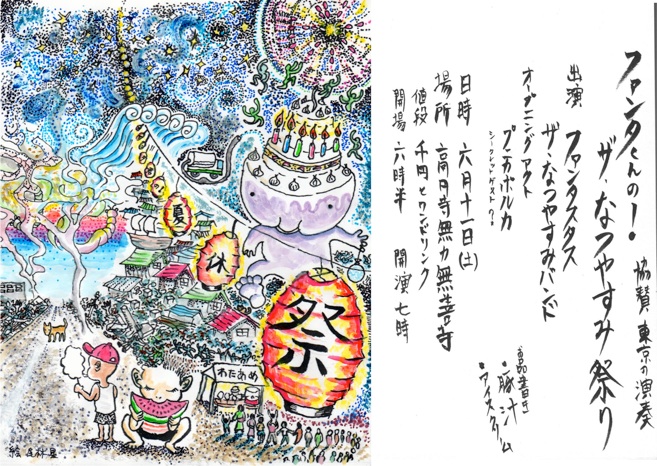 ファンタくんの！
ザ・なつやすみ祭り
協賛 東京の演奏
出演 ファンタスタス
ザ・なつやすみバンド
オープニングアクト
プニカポルカ
シークレットゲスト??
日時 六月十一日(土)
場所 高円寺無力無善寺
値段 千円とワンドリンク
開場 六時半 開演 七時
お品書き
・豚汁
・アイスクリーム
夏
休
祭
わたあめ